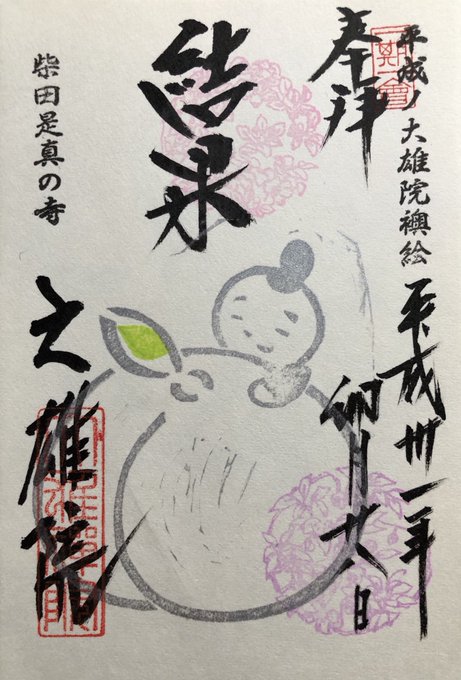 平成ノ大雄院襖絵
奉拝
一期一會
平成卅一年
卯月廿八日
結果
柴田是真の寺
大雄院